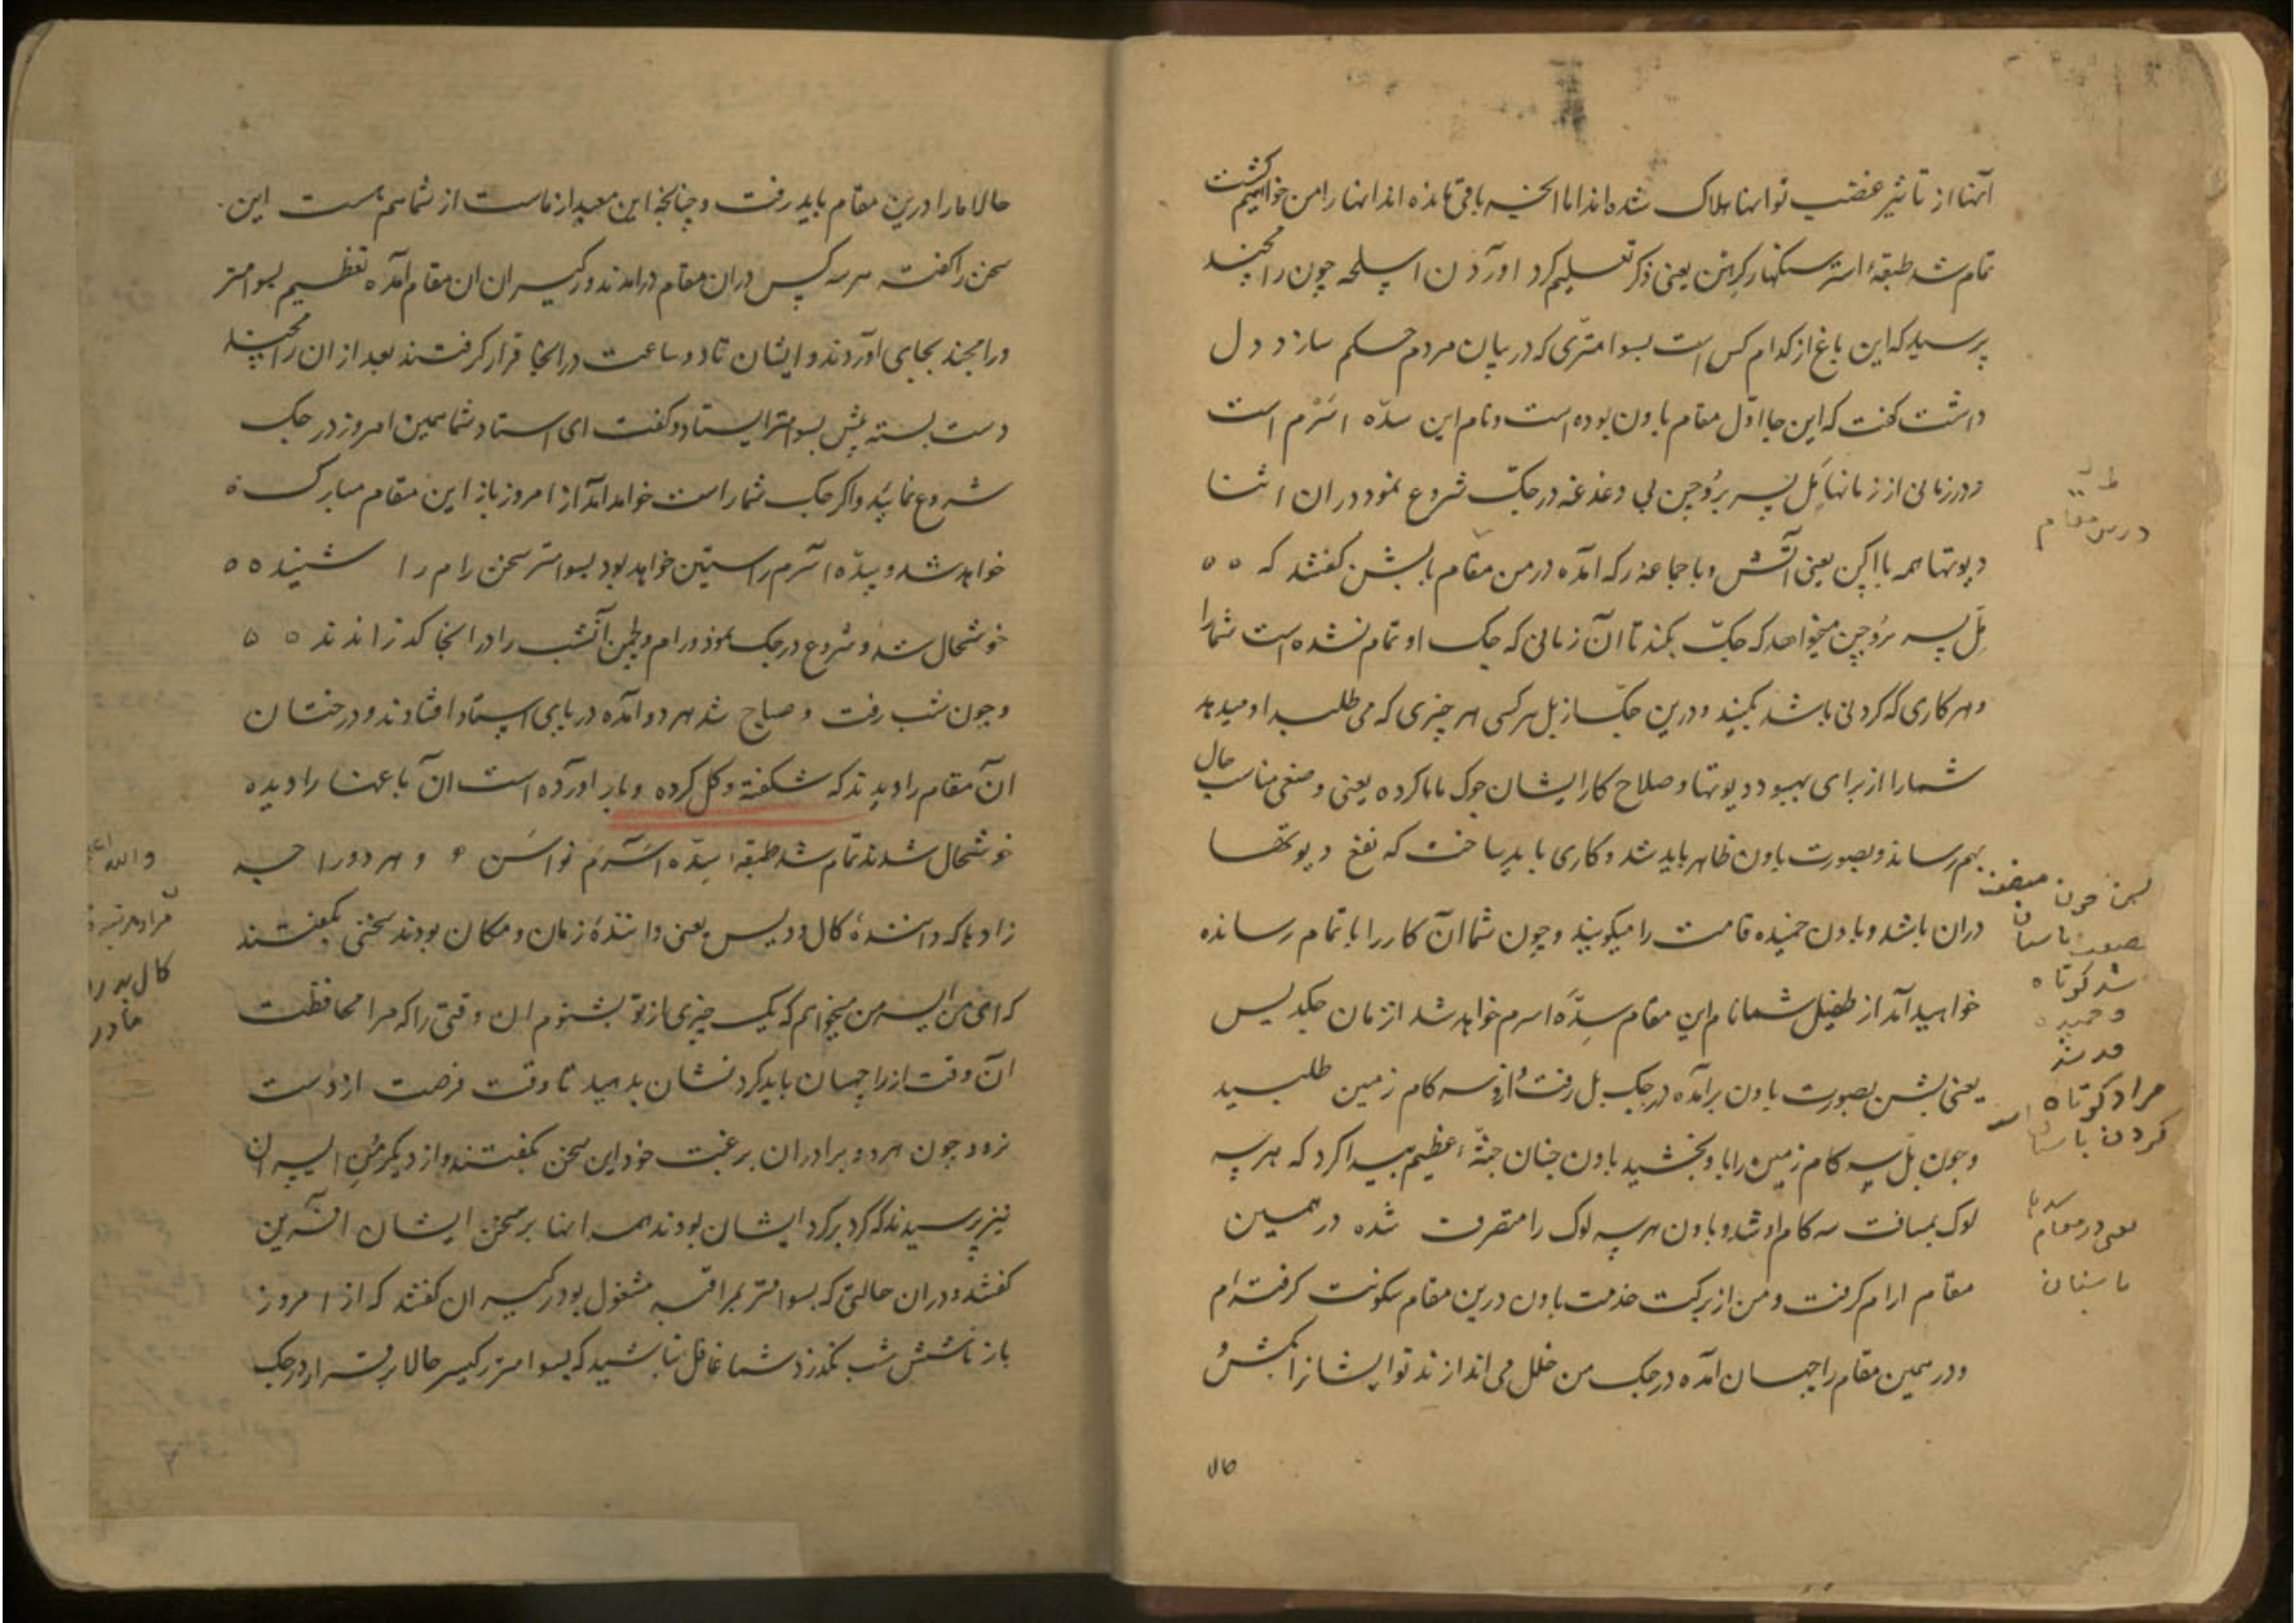 آنها از تاثیر غضب تو اینها هلاک شده اند اما انچه باقی مانده اند اینها را من خواهیم کشت
تمام شد طبقهٔ استر سنکهار کرهن یعنی ذکر تعلیم کرد اوردن اسلحه چون رامچند
پرسید که این باغ از کدام کس است بسوامتری که در بیان مردم حکم سازد دل
داشت کفت که این جا اوّل مقام باون بوده است و نام این سدّه اسرم است
و در زمانی از زمانها بل پسر بروچن بی دغدغه در جکّ شروع نمود دران اثنا
دیوتها همه با اکن یعنی آتش و با جماعه رکه آمده در من مقام بابشن کفتند که
بل پسر بروچن میخواهد که جکّ بکند تا آن زمانی که جک او تمام نشده است شما را
و هر کاری که کردنی باشد بکنید و درین جکّ از بل هر کس هر چیزی که می طلبد او میدهد
شما را از برای بهبود دیوتها و صلاح کار ایشان جوک مایا کرده یعنی وضعی مناسب حال
بهم رساند و بصورت باون ظاهر باید شد و کاری باید ساخت که نفع دیوتها
دران باشد و باون خمیده قامت را میکویند و چون شما آن کار را باتمام رسانده
خواهید آمد از طفیل شما نام این مقام سدّه اسرم خواهد شد از زمان جکدیس
یعنی بشن بصورت باون برآمده در جک بل رفت و از و سه کام زمین طلبید
و چون بل سه کام زمین را باو بخشید باون چنان جثهٔ عظیم پیدا کرد که هر سه
لوک بمسافت سه کام او شد و باون هر سه لوک را متصرف شده در همین
مقام ارام کرفت و من از برکت خدمت باون درین مقام سکونت کرفته ام
و در همین مقام راچهسان آمده در جک من خلل می اندازند تو ایشانرا بکش
حالا
درین مقام
بشن چون
بصورت باسنان
شد کوتاه
و خمیده
قد شد
مراد کوتاه
کردن باسنان
یعنی در مقام
باسنان
حالا ما را درین مقام باید رفت و چنانچه این معبد از ماست از شما هم هست این
سخن را کفته هر سه کس دران مقام درامدند و رکیسران ان مقام آمده تعظیم بسوامتر
و رامچند بجای اوردند و ایشان تا دو ساعت در انجا قرار کرفتند بعد از ان رامچند
دست بسته پیش بسوامتر ایستاد و کفت ای استاد شما همین امروز در جک
شروع نمایید و اکر جک شما راست خواهد آمد از امروز باز این مقام مبارک
خواهد شد و سدّه اسرم راستین خواهد بود بسوامتر سخن رام را شنیده
خوشحال شد و شروع در جک نمود و رام و لچمن آنشب را در انجا کذراندند
و چون شب رفت و صباح شد هر دو آمده در پای استاد افتادند و درختان
آن مقام را دیدند که شکفته و کل کرده و بار اورده است ان باغها را دیده
خوشحال شدند تمام شد طبقهٔ سدّه اسرم نواسن و هر دو راجه
زادها که دانندهٔ کال و دیس یعنی دانندهٔ زمان و مکان بودند سخنی بکفتند
که ای من ایسر من میخواهم که یک چیزی از تو بشنوم ان وقتی را که مرا محافظت
آن وقت از راچهسان باید کرد نشان بدهید تا وقت فرصت از دست
نرود چون هر دو برادران برغبت خود این سخن بکفتند و از دیکر من ایسران
نیز پرسیدند که کرد بر کرد ایشان بودند همه اینها بر سخن ایشان افرین
کفتند و دران حالتی که بسوامتر بمراقبه مشغول بود رکیسران کفتند که از امروز
باز تا شش شب نکذرد شما غافل نباشید که بسوامتر رکیسر حالا برقرار در جک
والله اعلم
کال
مادر